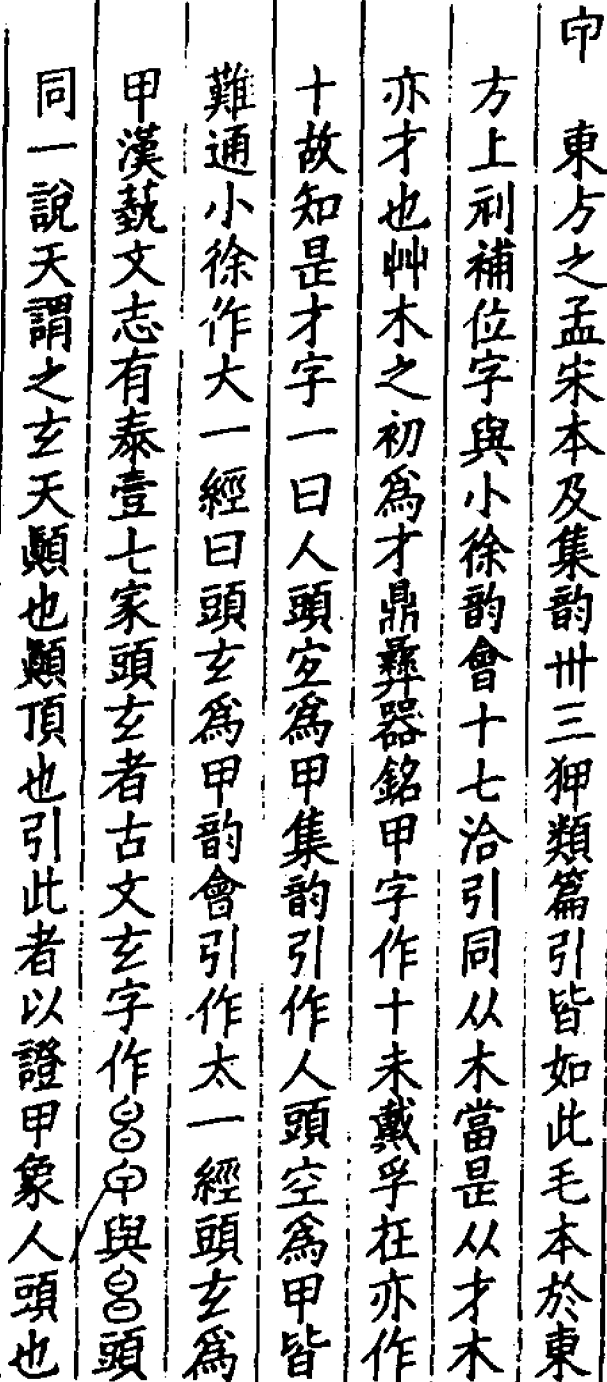 東方之孟宋本及集韵卅三狎類篇引皆如此毛本於東
方上剜補位字與小徐韵會十七洽引同从木當是从才木
亦才也艸木之初爲才鼎彝器銘甲字作十未戴孚在亦作
十故知是才字一曰人頭宐爲甲集韵引作人頭空爲甲皆
難通小徐作大一經曰頭玄爲甲韵會引作太一經頭玄爲
甲漢藝文志有泰壹七家頭玄者古文玄字作與頭
同一說天謂之玄天顚也顚頂也引此者以證甲象人頭也